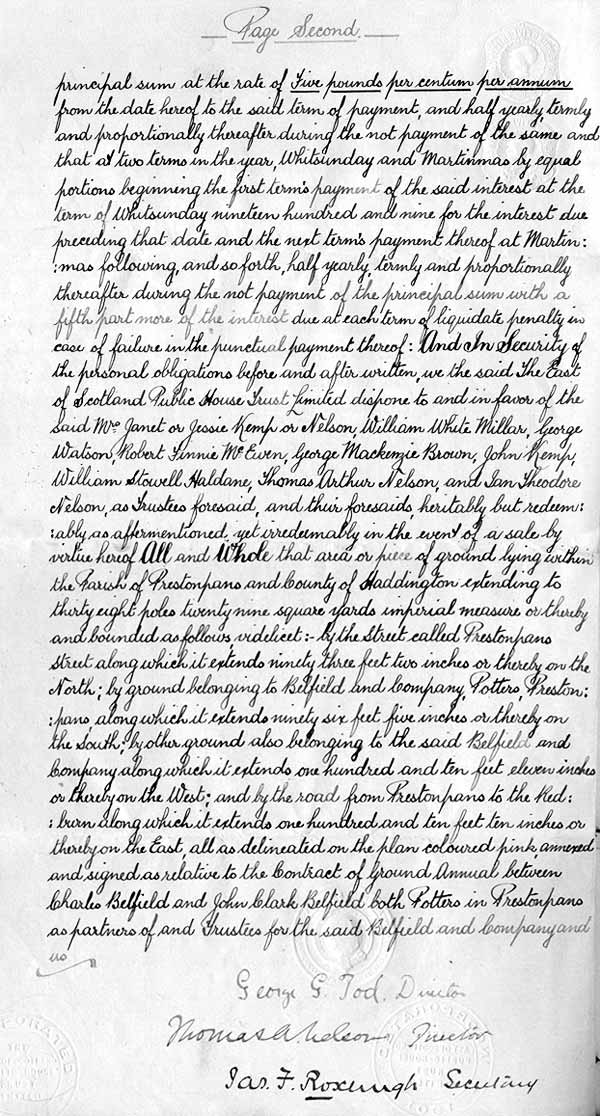 Page Second.
principal sum at the rate of Five pounds per centum per annum
from the date hereof to the said term of payment, and half yearly, termly
and proportionally thereafter during the not payment of the same and
that at two terms in the year, Whitsunday and Martinmas by equal
portions beginning the first term's payment of the said interest at the
term of Whitsunday nineteen hundred and nine for the interest due
preceding that date and the next term's payment thereof at Martin:
:mas following, and so forth, half yearly, termly and proportionally
thereafter during the not payment of the principal sum with a
fifth part more of the interest due at each term of liquidate penalty in
case of failure in the punctual payment thereof: And In Security of
the personal obligations before and after written, we the said The East
of Scotland Public House Trust Limited dispone to and in favor of the
said Mrs. Janet or Jessie Kemp or Nelson, William White Millar, George
Watson, Robert Finnie McEwen, George Mackenzie Brown, John Kemp,
William Stowell Haldane, Thomas Arthur Nelson, and Ian Theodore
Nelson, as Trustees foresaid, and their foresaids, heritably but redeem:
:ably as aftermentioned, yet irredeemably in the event of a sale by
virtue hereof All and Whole that area or piece of ground lying within
the Parish of Prestonpans and County of Haddington extending to
thirty eight poles twenty nine square yards imperial measure or thereby
and bounded as follows videlicet:- by the Street called Prestonpans
Street along which it extends ninety three feet two inches or thereby on the
North; by ground belonging to Belfield and Company, Potters, Preston:
:pans, along which it extends ninety six feet five inches or thereby on
the South; by other ground also belonging to the said Belfield and
Company along which it extends one hundred and ten feet eleven inches
or thereby on the West; and by the road from Prestonpans to the Red:
:burn along which it extends one hundred and ten feet ten inches or
thereby on the East, all as delineated on the plan coloured pink, annexed
and signed as relative to the Contract of Ground Annual between
Charles Belfield and John Clark Belfield both Potters in Prestonpans
as partners of and Trustees for the said Belfield and Company and
us
George G. Tod. Director
Thomas A. Nelson Director
Jas. F. Roxburgh Secretary